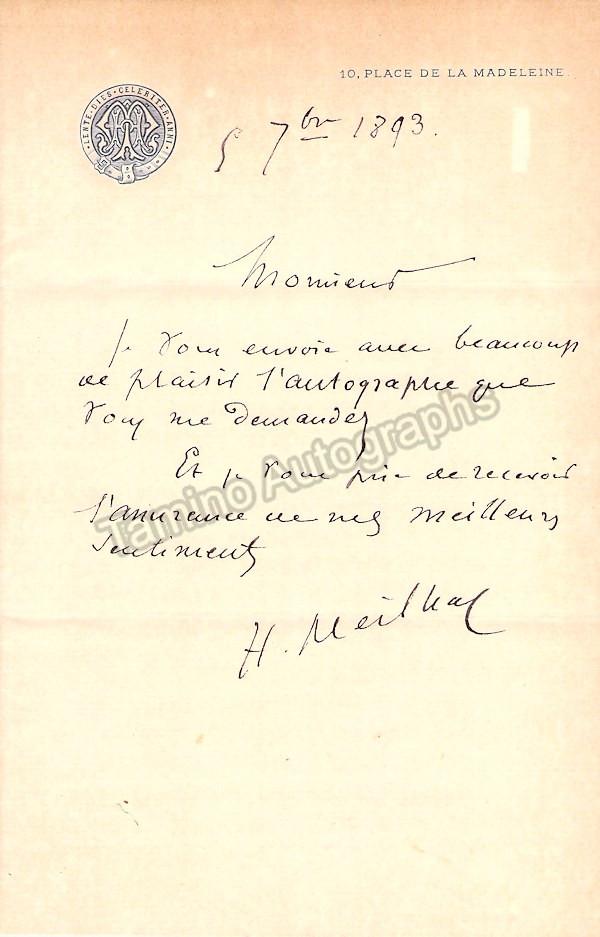 10, PLACE DE LA MADELEINE.
LENTE · DIES · CELERITER · ANNI
5 7bre 1893.
Monsieur
Je vous envoie avec beaucoup
de plaisir l'autographe que
vous me demandez
Et je vous prie de recevoir
l'assurance de mes meilleurs
sentiments
H. Meilhac
Tamino Autographs